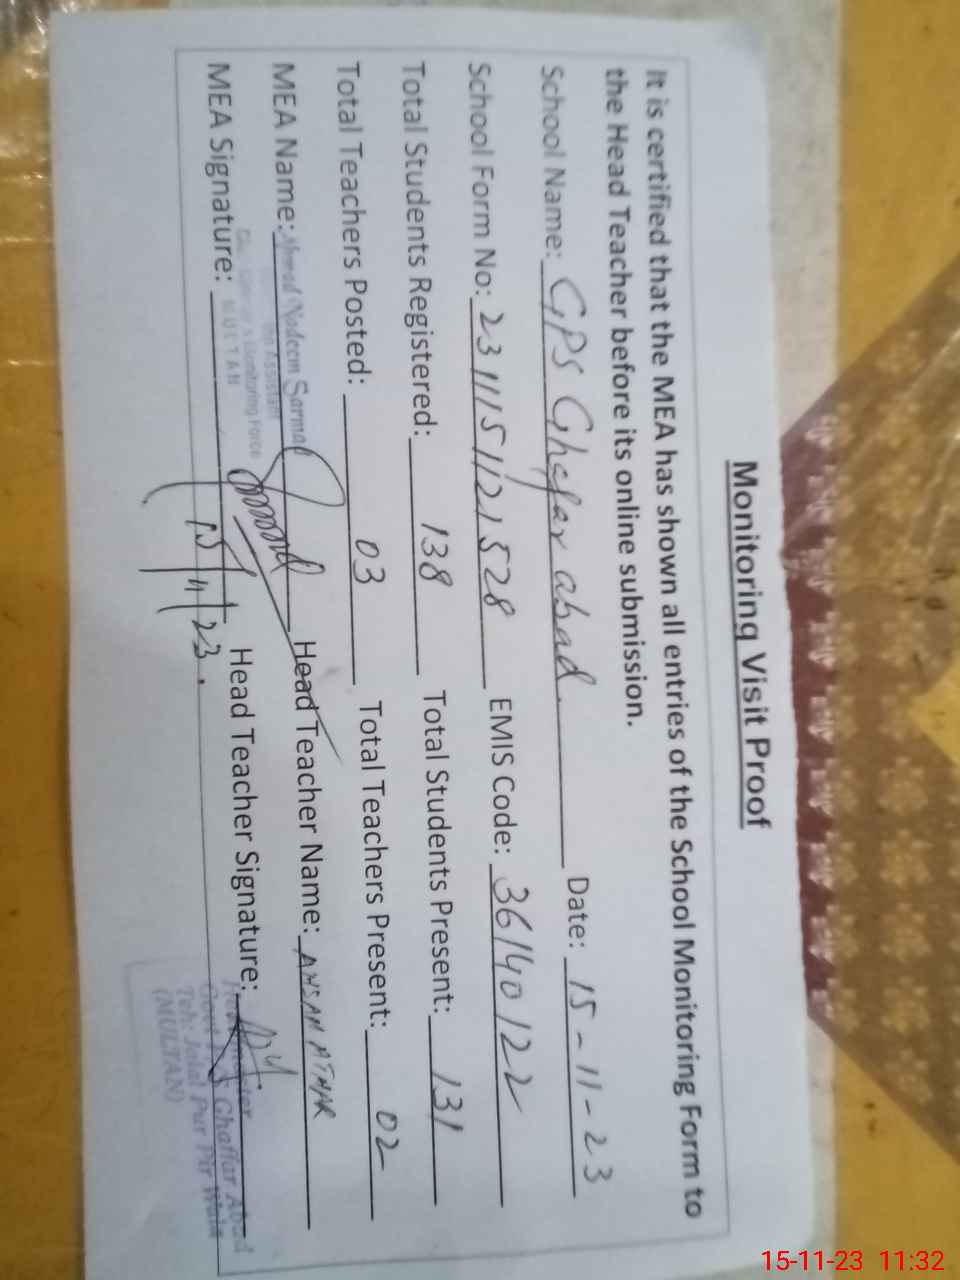 Monitoring Visit Proof
It is certified that the MEA has shown all entries of the School Monitoring Form to
the Head Teacher before its online submission.
School Name: GPS Ghafar abad Date: 15-11-23
School Form No: 2311151121528 EMIS Code: 36140122
Total Students Registered: 138 Total Students Present: 131
Total Teachers Posted: 03 Total Teachers Present: 02
MEA Name: Ahmad Nadeem Sarmad Head Teacher Name: AHSAN ATHAR
Monitoring Force
MULTAN
MEA Signature: Head Teacher Signature:
15/11/23.
Ghaffar Abad
Teh: Jalal Pur Pir Wala
(MULTAN)
15-11-23 11:32